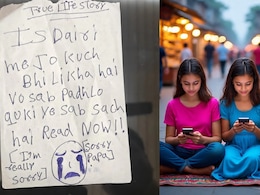 True Life story
Is Dairi
me Jo kuch
Bhi Likha hai
vo sab Padhlo
quki ye sab sach
hai Read Now!!
[I'm really sorry]
[sorry Papa]